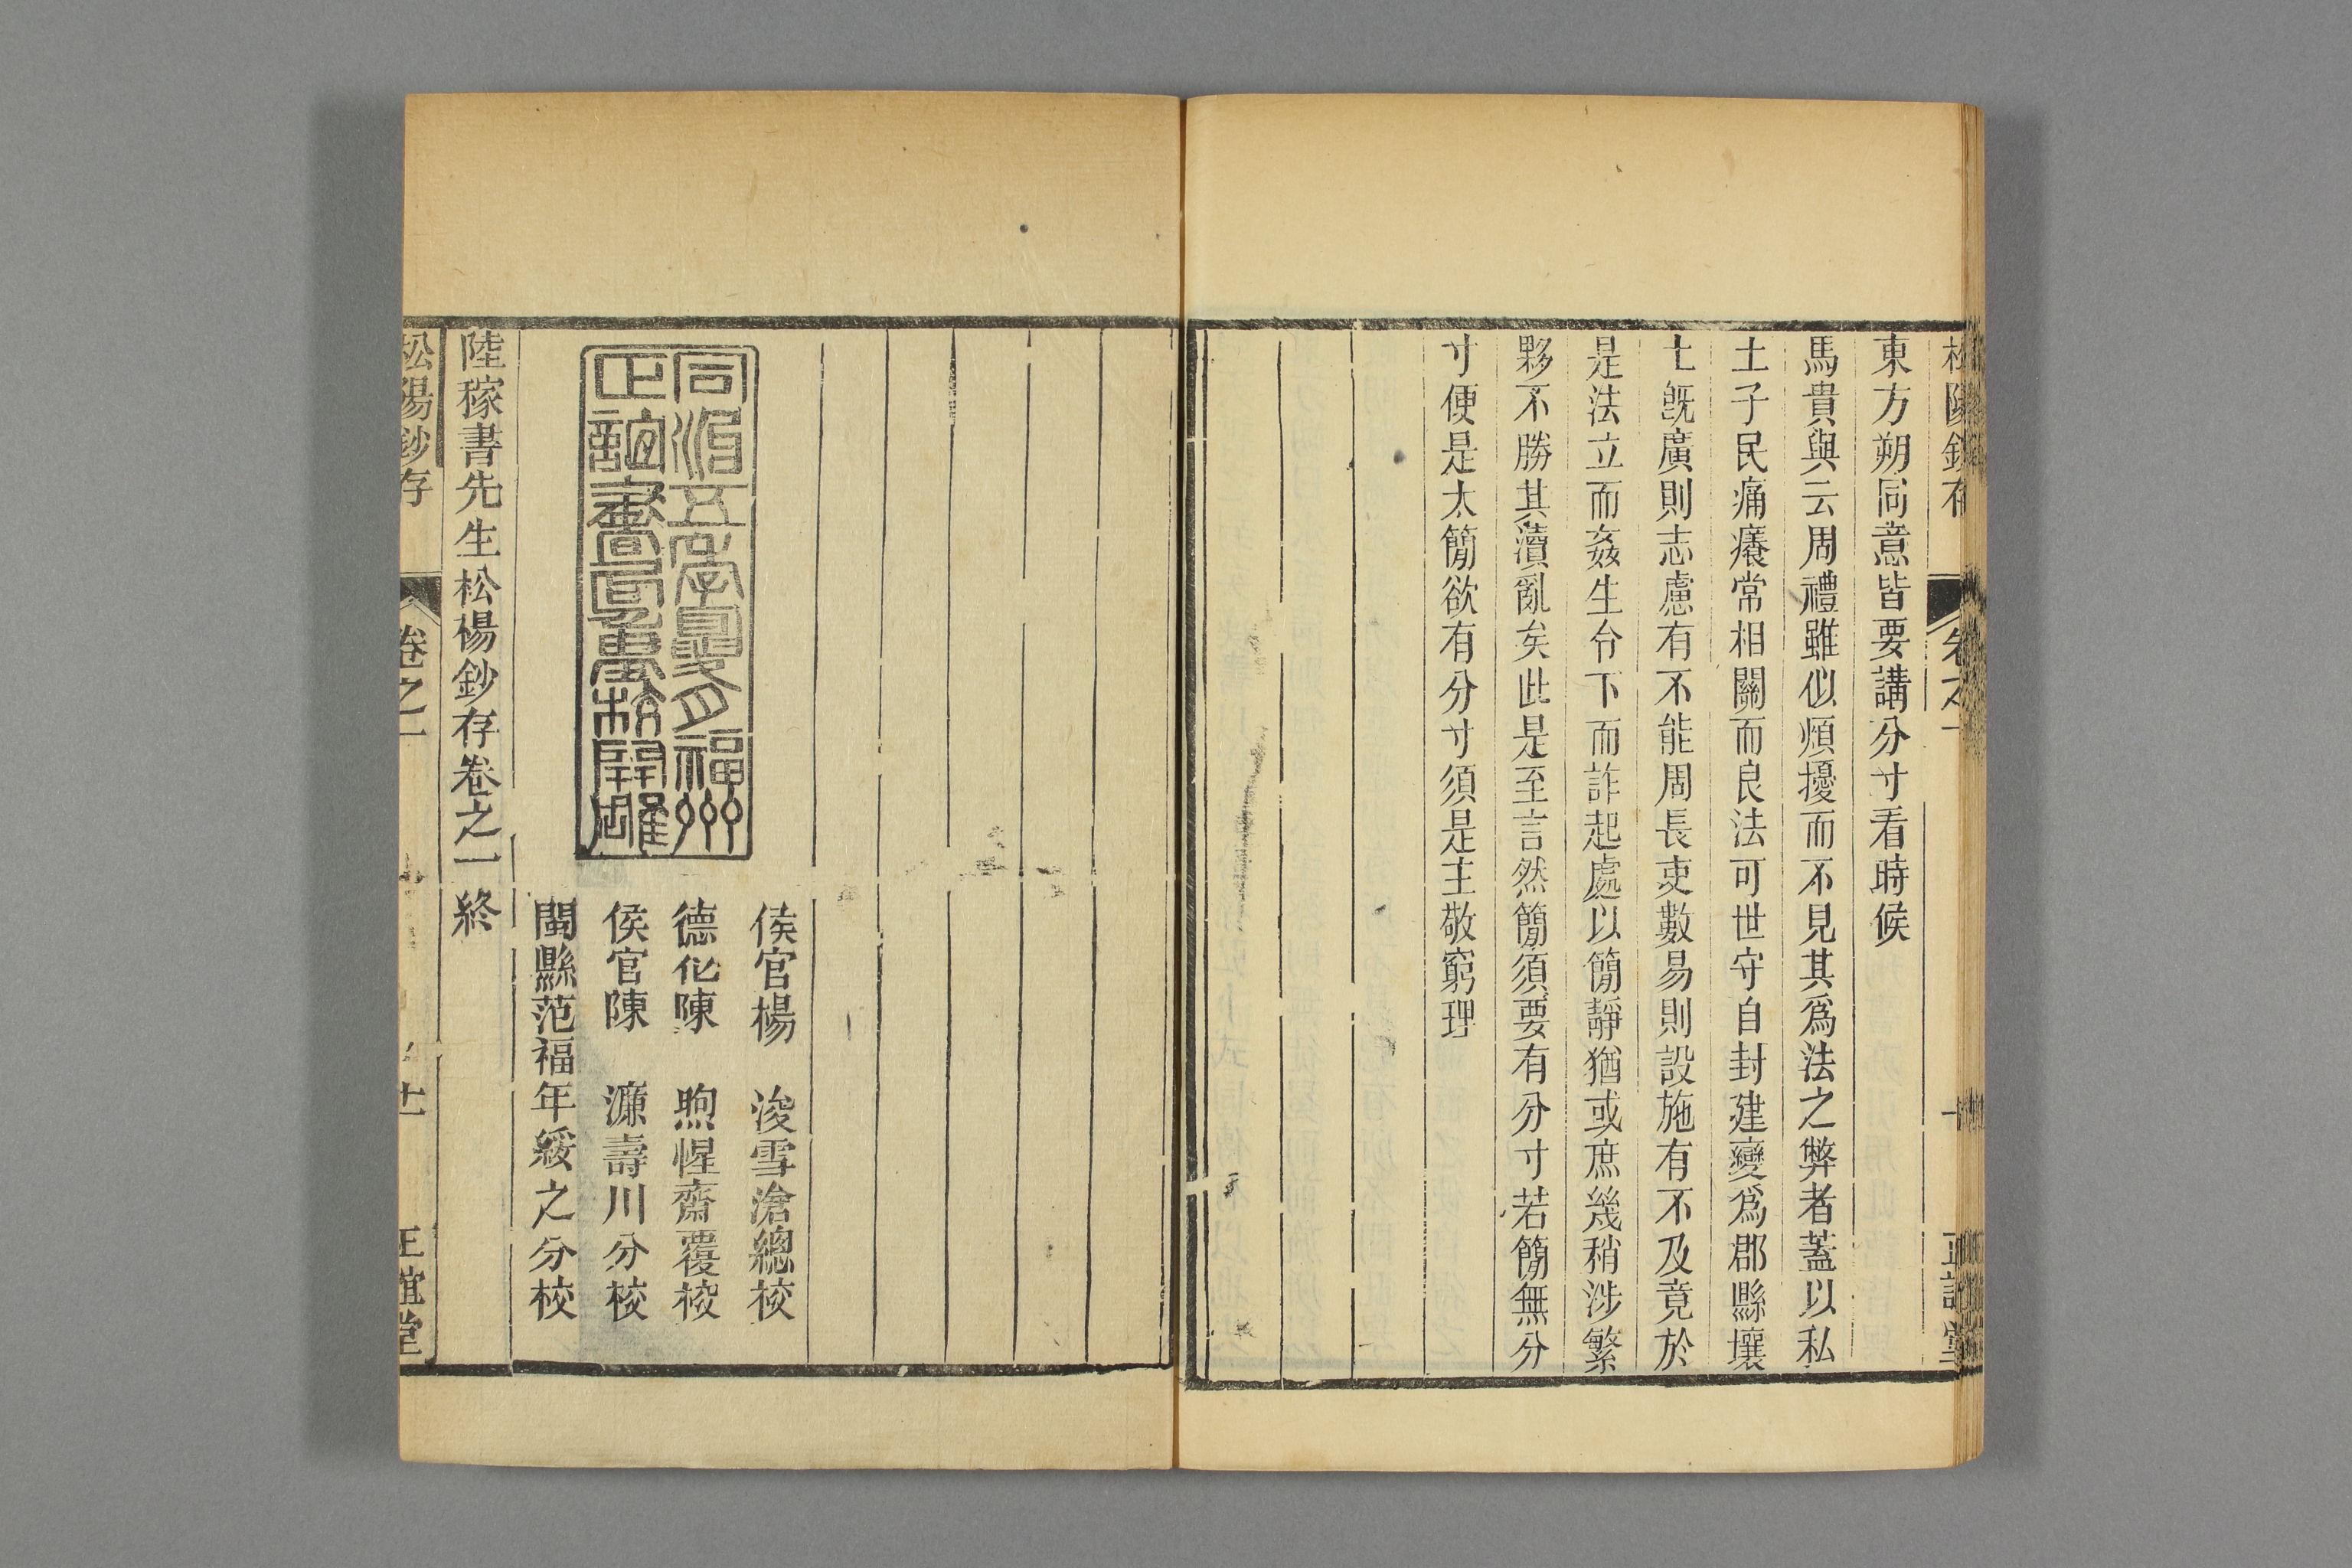 東方朔同意皆要講分寸看時候
馬貴與云周禮雖似煩擾而不見其爲法之弊者蓋以私
土子民痛癢常相關而良法可世守自封建變爲郡縣壤
土旣廣則志慮有不能周長吏數易則設施有不及竟於
是法立而姦生令下而詐起處以簡靜猶或庶幾稍涉繁
夥不勝其瀆亂矣此是至言然簡須要有分寸若簡無分
寸便是太簡欲有分寸須是主敬窮理
同治五年夏月福州
正誼書局重校開雕
侯官楊　浚雪滄總校
德化陳　煦惺齋覆校
侯官陳　濂壽川分校
閩縣范福年綏之分校
陸稼書先生松楊鈔存卷之一終
松陽鈔存　卷之一　十一　正誼堂